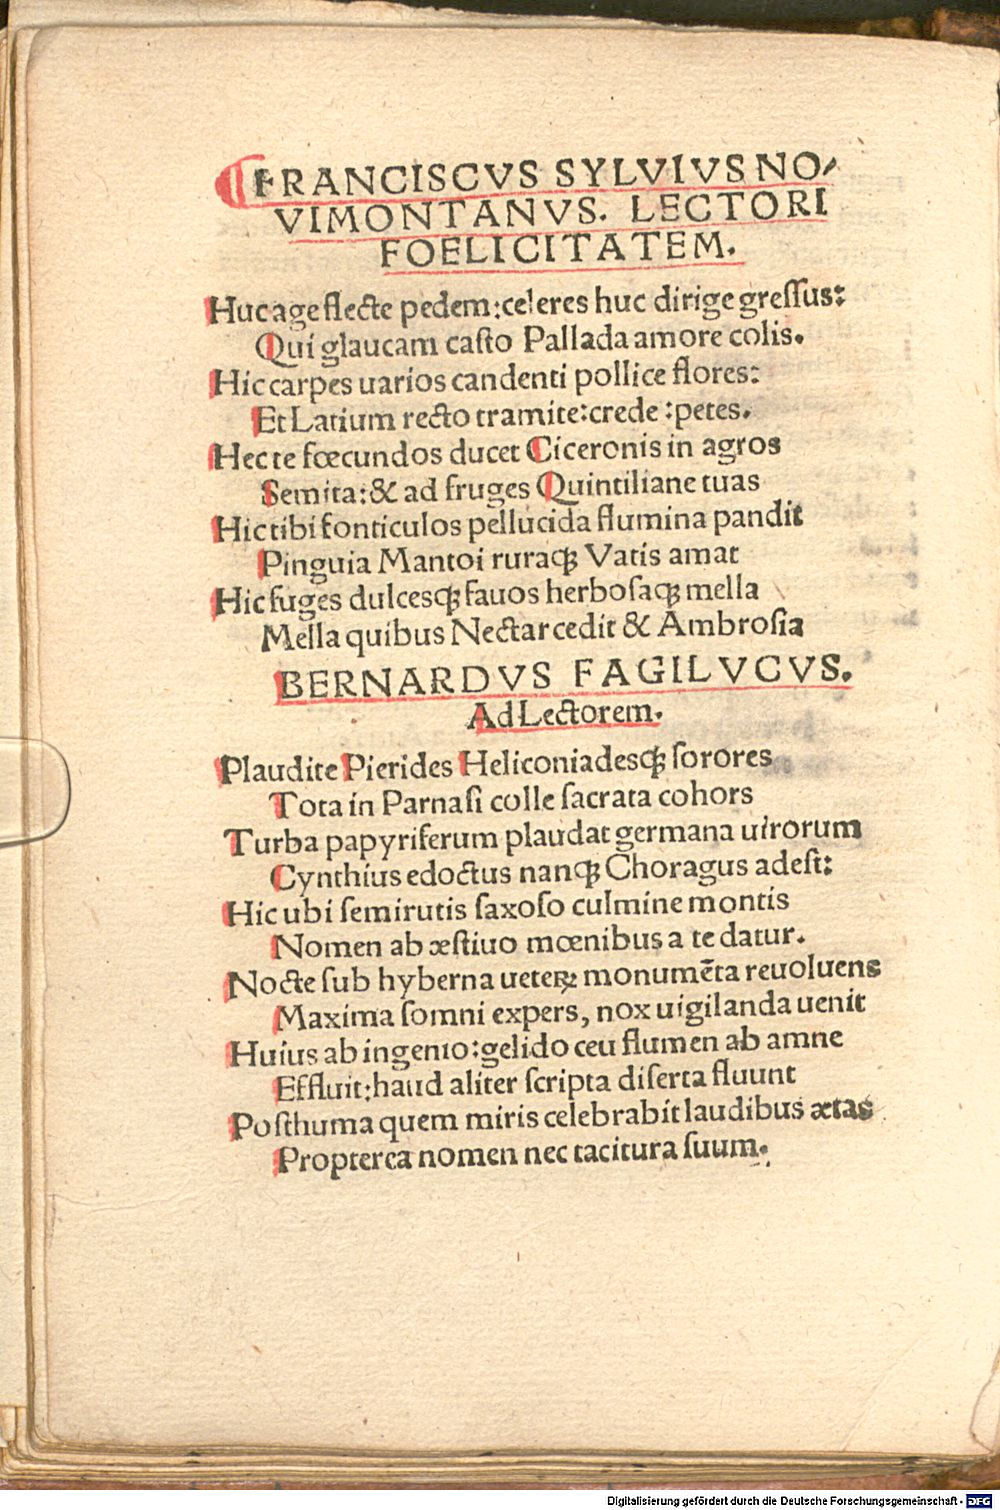 FRANCISCVS SYLVIVS NO/
VIMONTANVS. LECTORI
FOELICITATEM.
Huc age flecte pedem: celeres huc dirige greſſus:
Qui glaucam caſto Pallada amore colis.
Hic carpes uarios candenti pollice flores:
Et Latium recto tramite: crede : petes.
Hec te fœcundos ducet Ciceronis in agros
Semita: & ad fruges Quintiliane tuas
Hic tibi fonticulos pellucida flumina pandit
Pinguia Mantoi ruraqꝫ Vatis amat
Hic fuges dulcesqꝫ fauos herboſaqꝫ mella
Mella quibus Nectar cedit & Ambroſia
BERNARDVS FAGILVCVS.
Ad Lectorem.
Plaudite Pierides Heliconiadesqꝫ ſorores
Tota in Parnaſi colle ſacrata cohors
Turba papyriferum plaudat germana uirorum
Cynthius edoctus nanqꝫ Choragus adeſt:
Hic ubi ſemirutis ſaxoſo culmine montis
Nomen ab æſtiuo mœnibus a te datur.
Nocte ſub hyberna ueteꝝ monumēta reuoluens
Maxima ſomni expers, nox uigilanda uenit
Huius ab ingenio: gelido ceu flumen ab amne
Effluit: haud aliter ſcripta diſerta fluunt
Poſthuma quem miris celebrabit laudibus ætas
Propterea nomen nec tacitura ſuum.
Digitalisierung gefördert durch die Deutsche Forschungsgemeinschaft - DFG